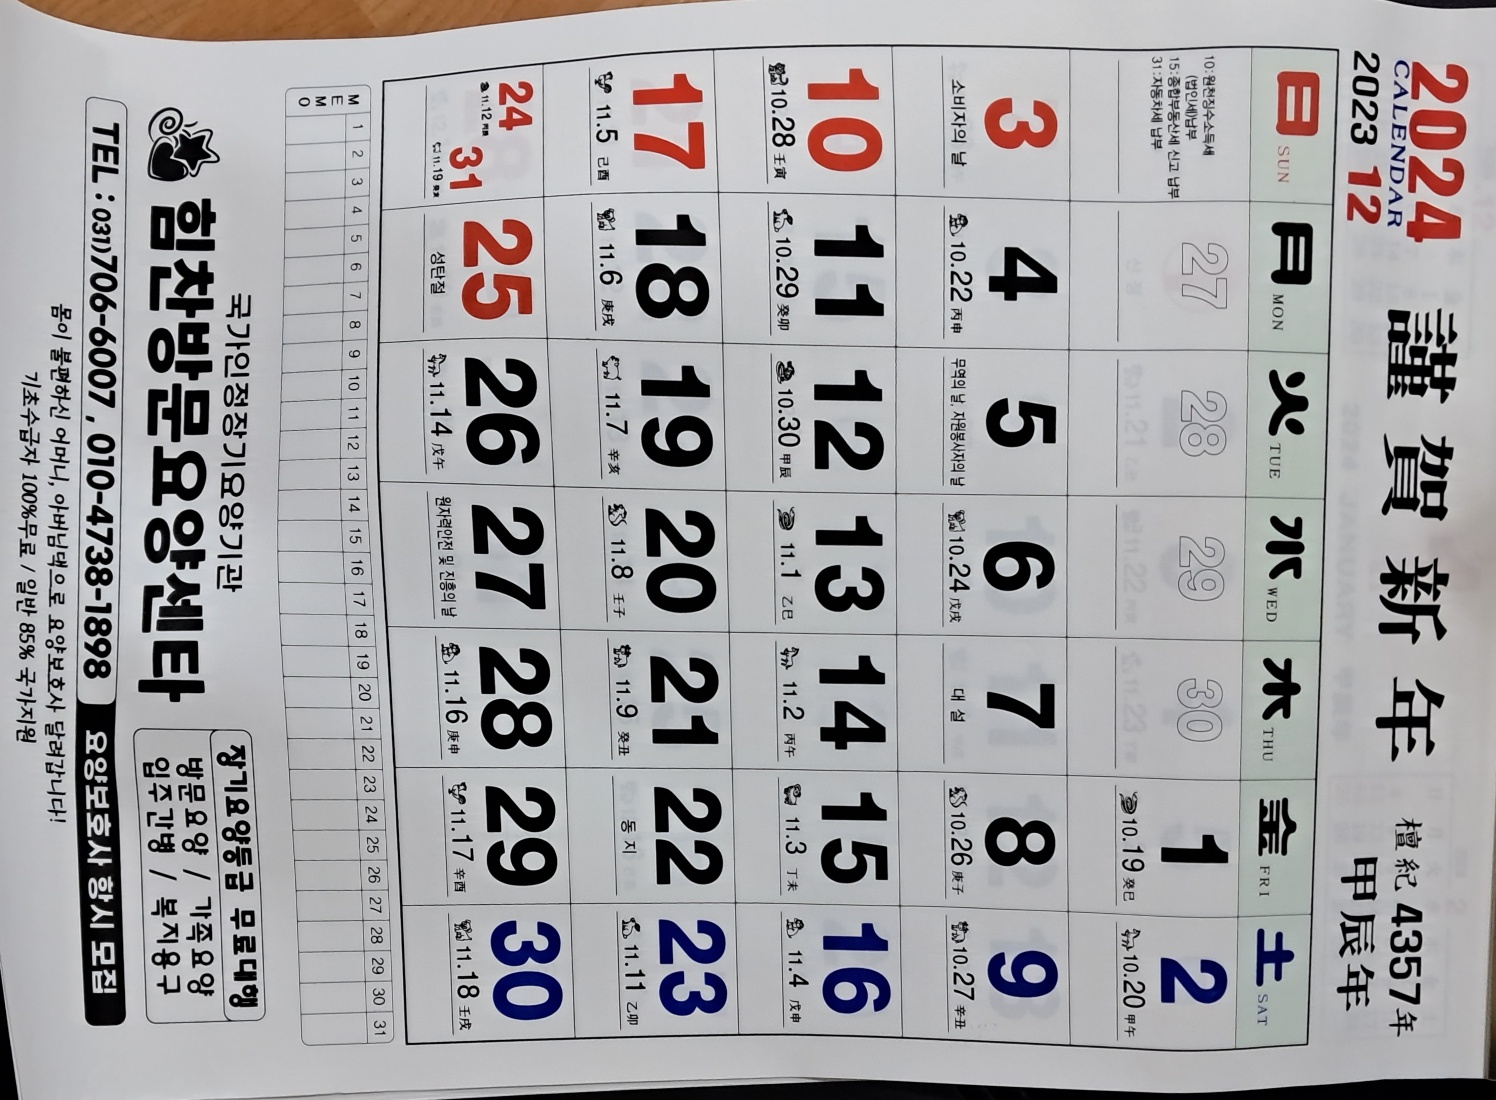 2024
CALENDAR
2023 12
謹賀新年
檀紀 4357年
甲辰年
日 SUN 月 MON 火 TUE 水 WED 木 THU 金 FRI 土 SAT
10:원천징수소득세
(법인세)납부
15:종합부동산세 신고 납부
31:자동차세 납부
27 28 29 30 1 2
10.19 癸巳 10.20 甲午
3 4 5 6 7 8 9
소비자의 날 10.22 丙申 무역의 날, 자원봉사자의 날 10.24 戊戌 대설 10.26 庚子 10.27 辛丑
10 11 12 13 14 15 16
10.28 壬寅 10.29 癸卯 10.30 甲辰 11.1 乙巳 11.2 丙午 11.3 丁未 11.4 戊申
17 18 19 20 21 22 23
11.5 己酉 11.6 庚戌 11.7 辛亥 11.8 壬子 11.9 癸丑 동지 11.11 乙卯
24 31 25 26 27 28 29 30
11.12 丙辰 11.19 癸亥 성탄절 11.14 戊午 원자력안전 및 진흥의 날 11.16 庚申 11.17 辛酉 11.18 壬戌
MEMO
1 2 3 4 5 6 7 8 9 10 11 12 13 14 15 16 17 18 19 20 21 22 23 24 25 26 27 28 29 30 31
국가인정장기요양기관
힘찬방문요양센타
장기요양등급 무료대행
방문요양 / 가족요양
입주간병 / 복지용구
TEL : 031)706-6007 , 010-4738-1898 요양보호사 항시 모집
몸이 불편하신 어머니, 아버님댁으로 요양보호사 달려갑니다!
기초수급자 100%무료 / 일반 85% 국가지원